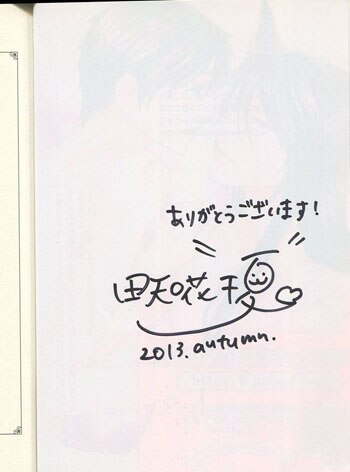 ありがとうございます!
田知花千夏
2013. autumn.